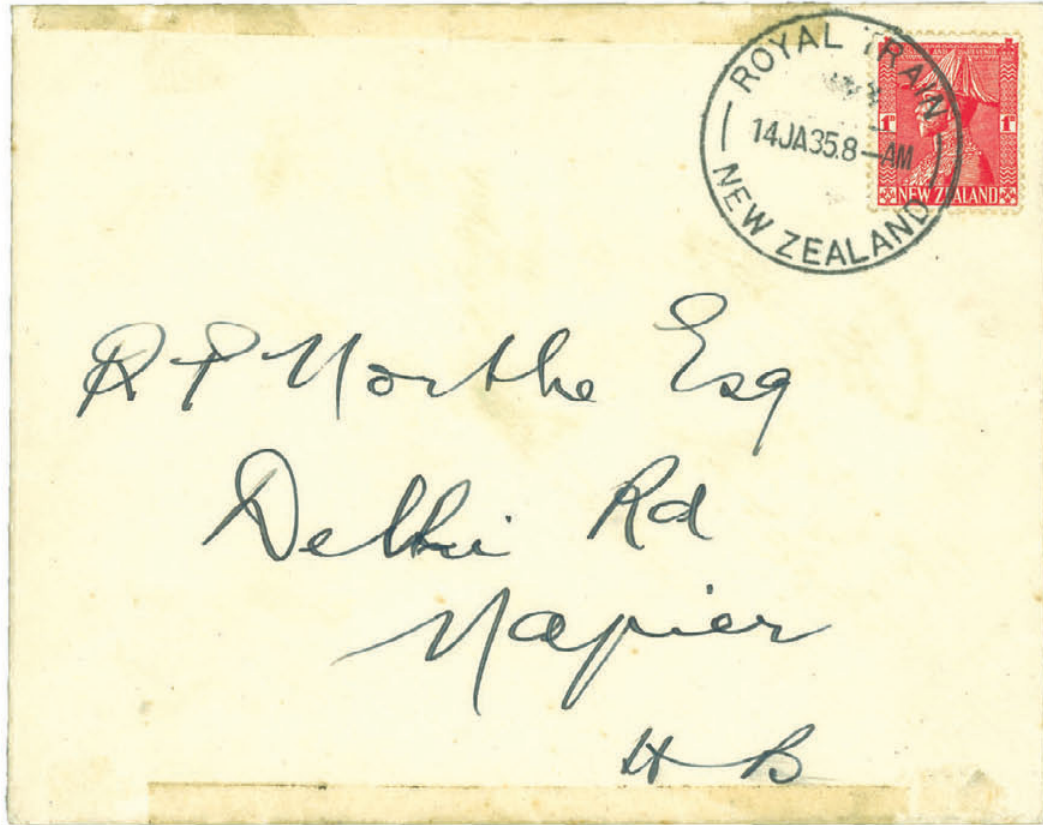 ROYAL TRAIN
14JA35.8-AM
NEW ZEALAND
1D 1D
NEW ZEALAND
R P Northe Esq
Delhi Rd
Napier
H B